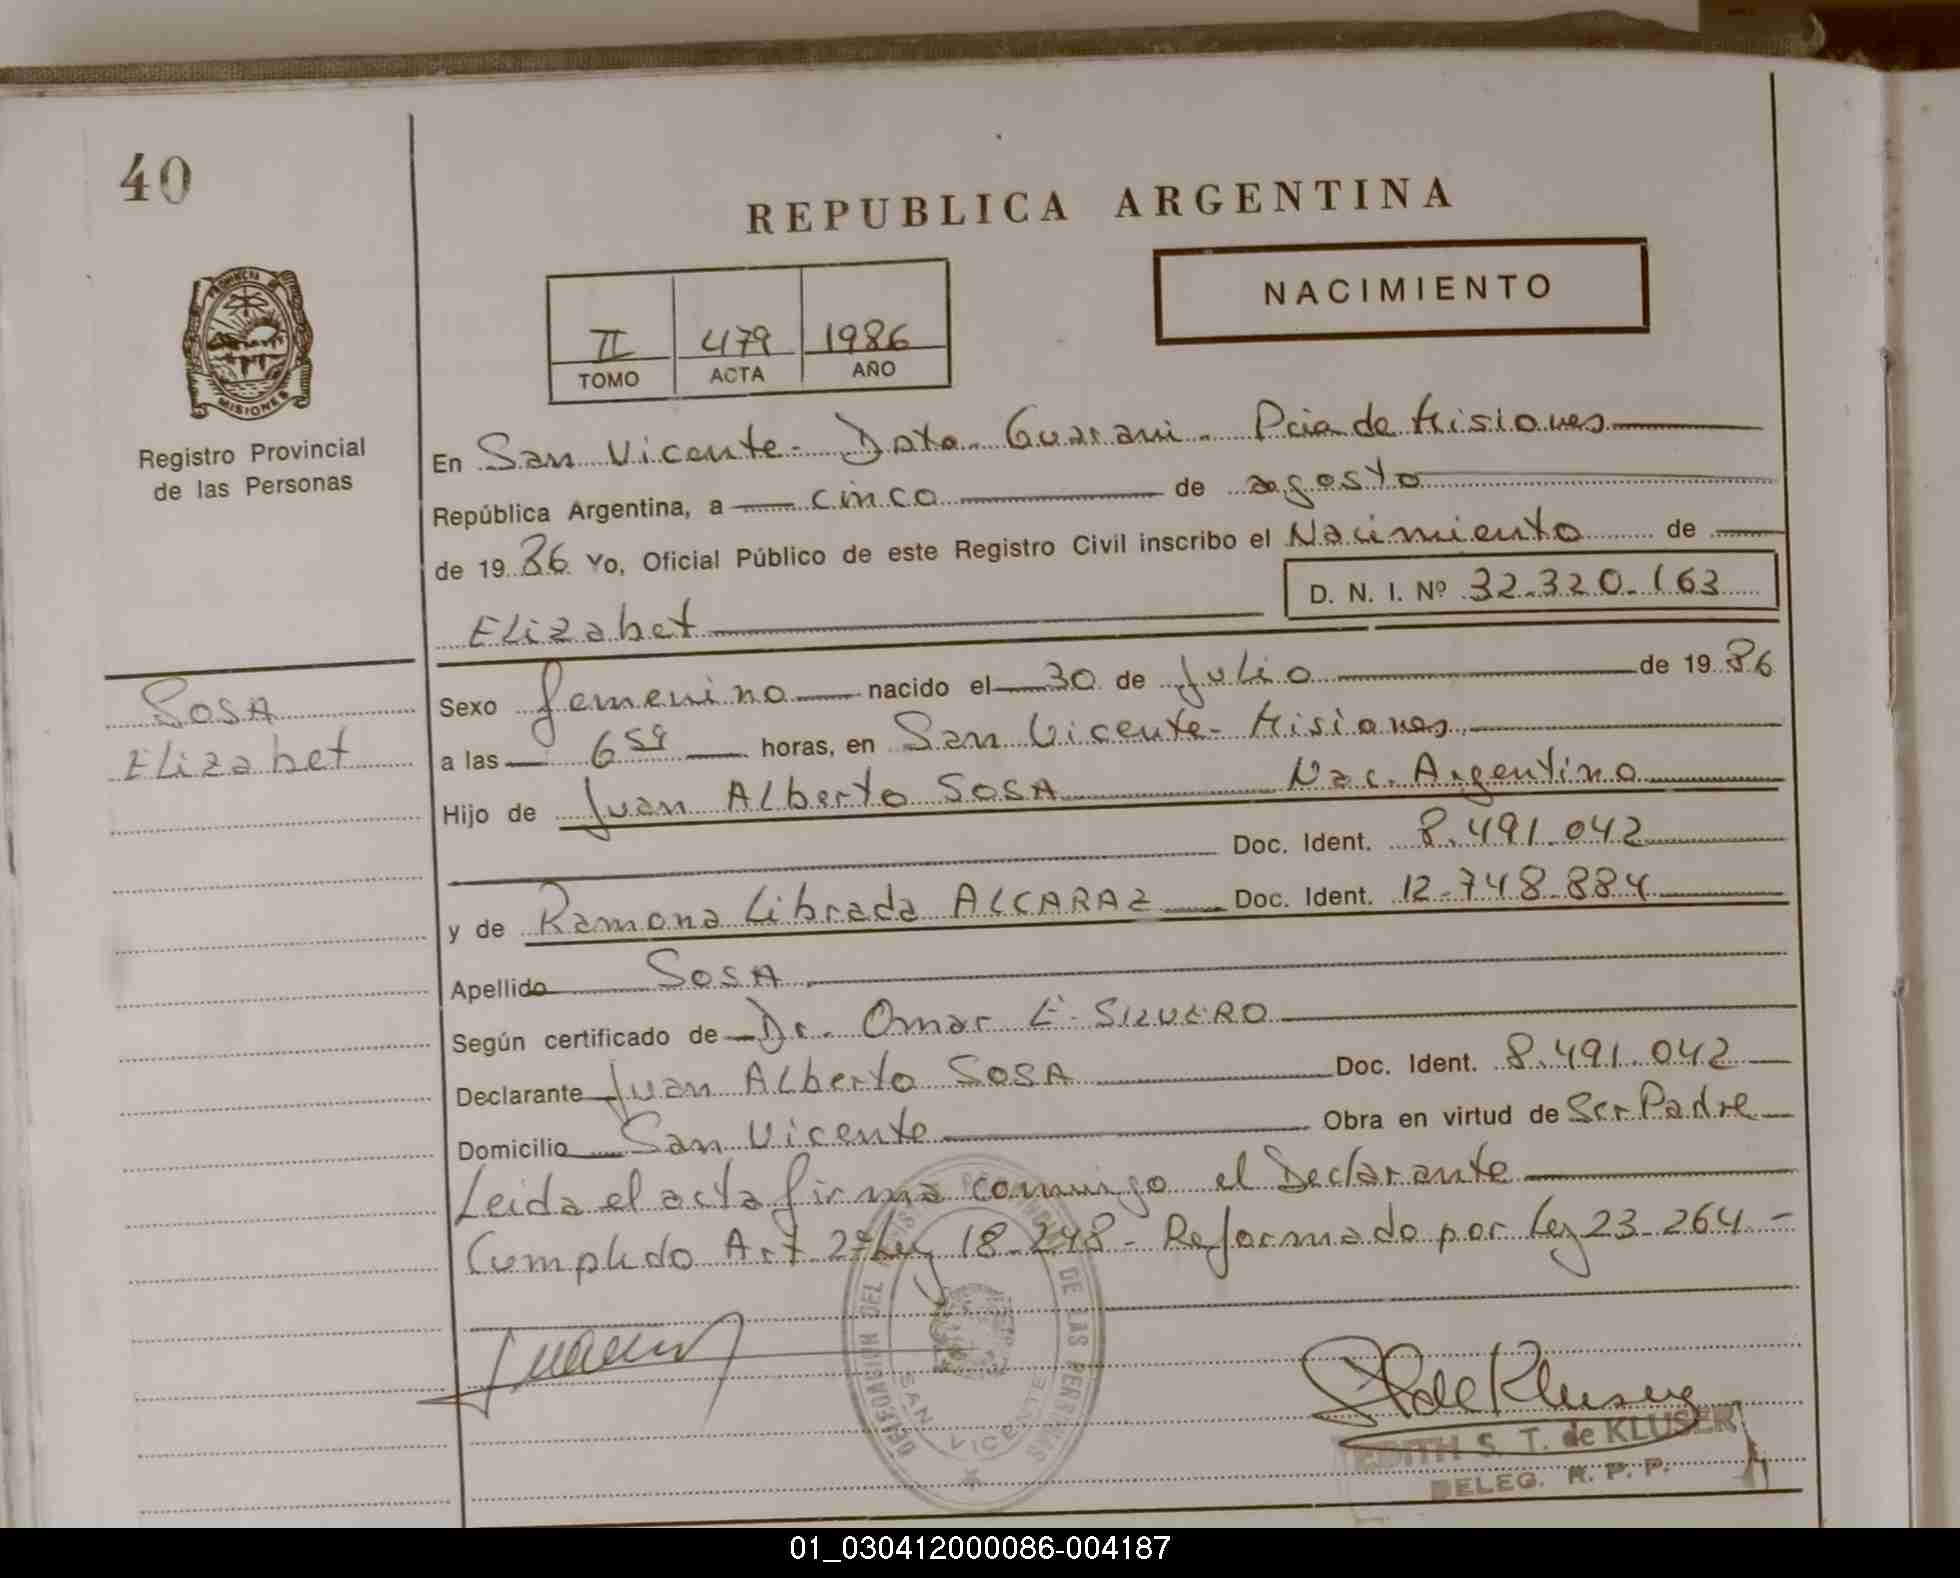 40
REPUBLICA ARGENTINA
NACIMIENTO
II 479 1986
TOMO ACTA AÑO
PROVINCIA DE
MISIONES
Registro Provincial
de las Personas
En San Vicente - Dpto. Guarani - Pcia de Misiones
República Argentina, a cinco de agosto
de 1986 Yo, Oficial Público de este Registro Civil inscribo el Nacimiento de
D. N. I. Nº 32.320.163
Elizabet
SOSA
Elizabet
Sexo femenino nacido el 30 de Julio de 1986
a las 6 59 horas, en San Vicente - Misiones
Hijo de Juan Alberto SOSA Nac. Argentino
Doc. Ident. 8.491.042
y de Ramona Librada ALCARAZ Doc. Ident. 12.748.884
Apellido SOSA
Según certificado de Dr. Omar E. SILVERO
Declarante Juan Alberto SOSA Doc. Ident. 8.491.042
Domicilio San Vicente Obra en virtud de Ser Padre
Leida el acta firma conmigo el Declarante
Cumplido Art 2º Ley 18.248 - Reformado por Ley 23.264 -
DELEGACION DEL REGISTRO PROVINCIAL DE LAS PERSONAS
SAN VICENTE
de Kluser
EDITH S. T. de KLUSER
DELEG. R. P. P.
01_030412000086-004187